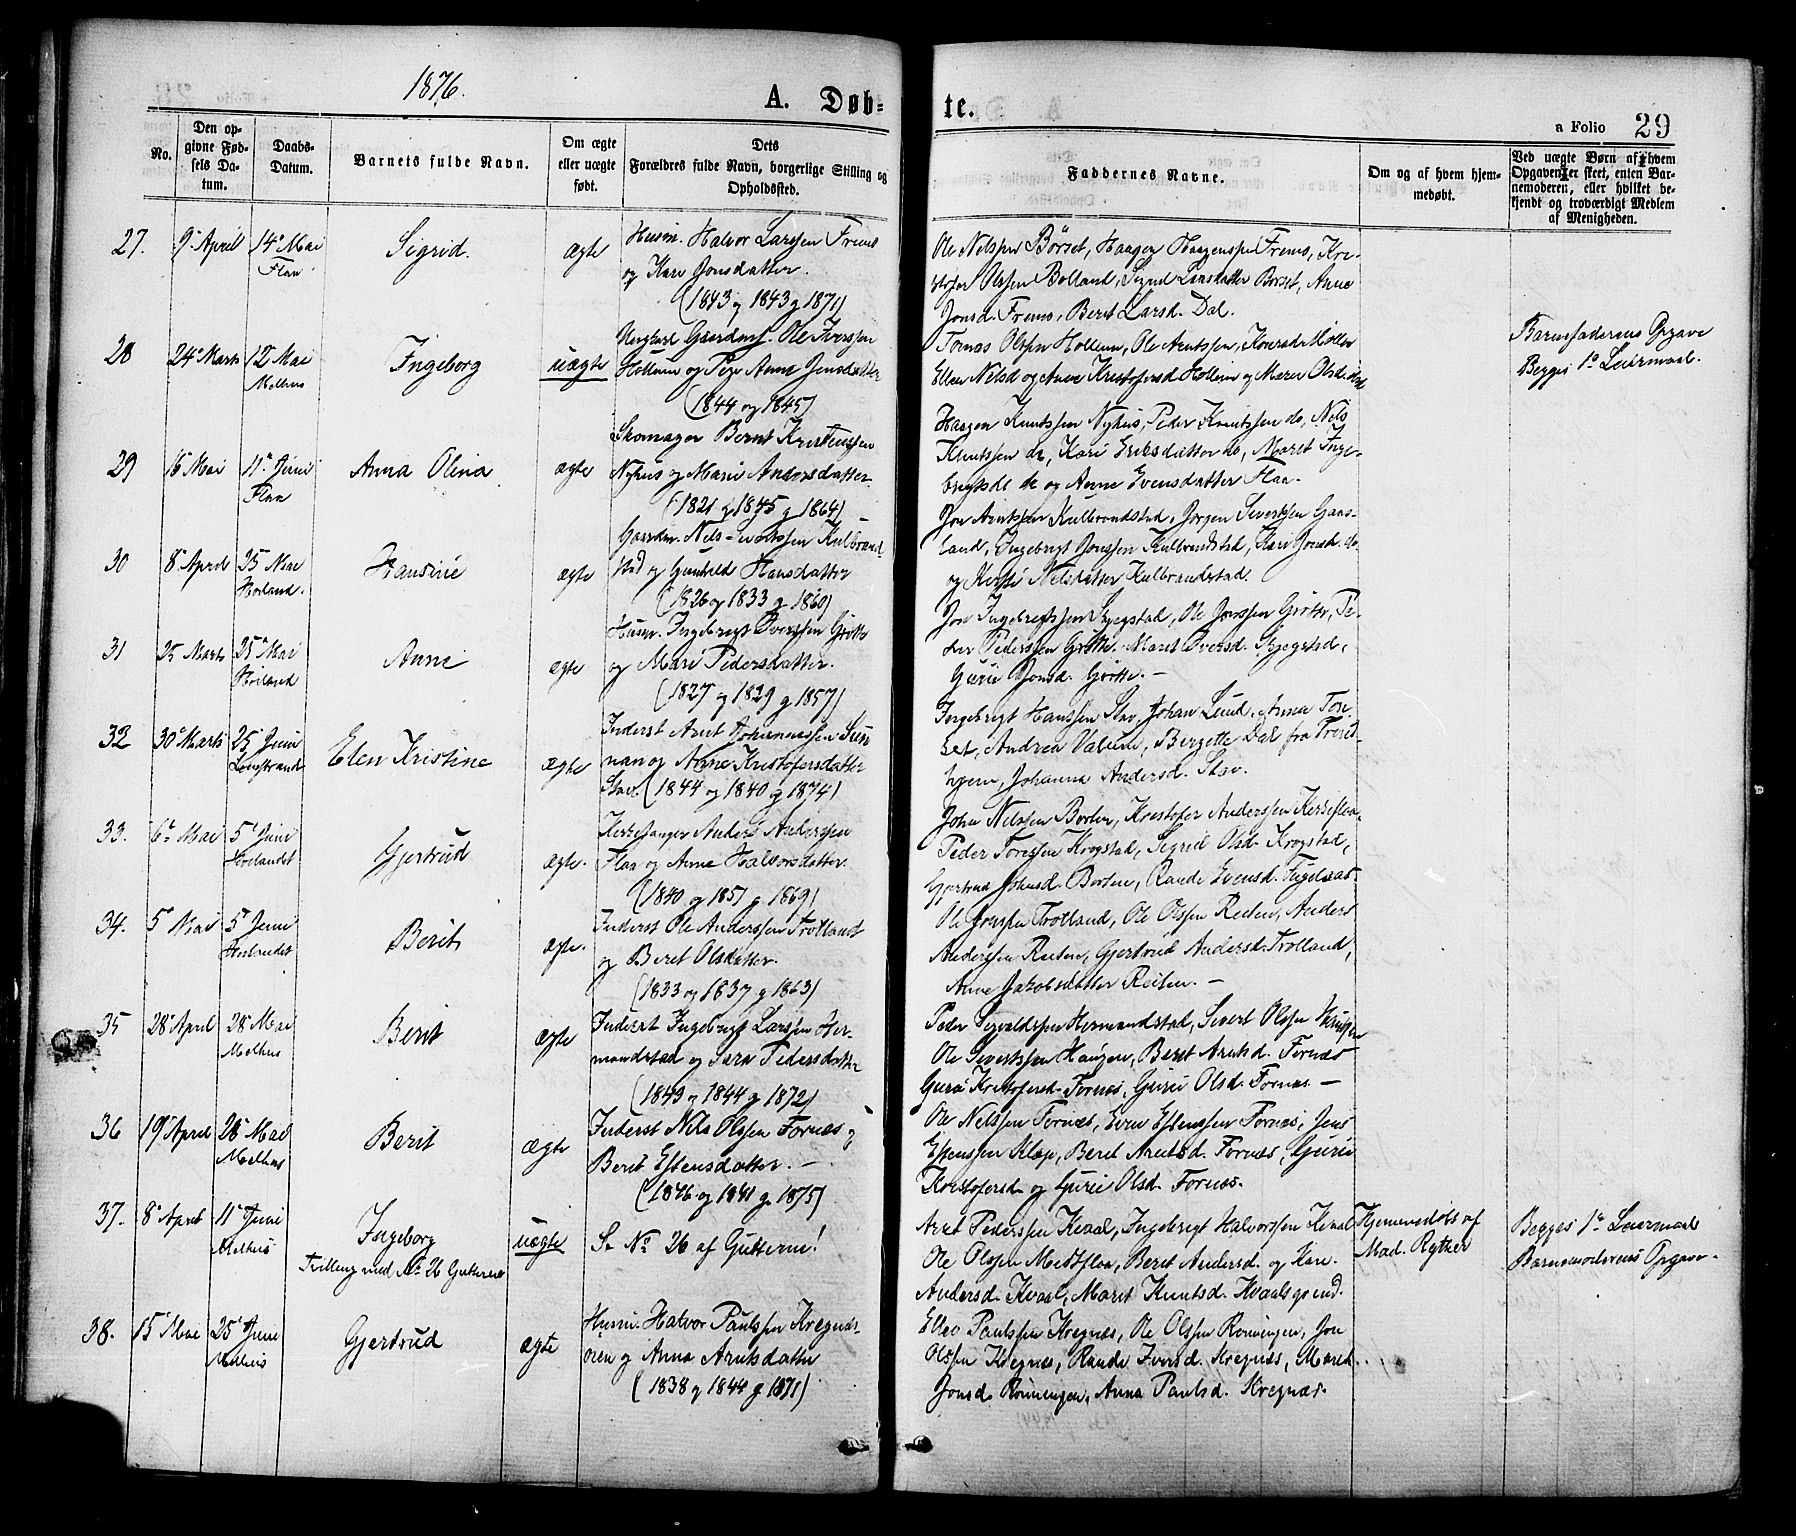 1876.
A. Døb-
te.
a Folio 29
No.
Den op-
givne Fød-
sels Da-
tum.
Daabs-
Datum.
Barnets fulde Navn.
Om ægte
eller uægte
født.
Dets
Forældres fulde Navn, borgerlige Stilling og
Opholdssted.
Faddernes Navne.
Om og af hvem hjem-
medøbt.
Ved uægte Børn af hvem
Opgaven er skeet, enten Bar-
nemoderen, eller hvilket be-
kjendt og troværdigt Medlem
af Menigheden.
27. 9 April 14 Mai
Flaa
Sigrid. ægte
Husm. Halvor Larssen Fremo
og Kari Jonsdatter.
(1843 og 1843 g 1871)
Ole Nelssen Börset, Haagen Haagenssen Fremo, Kri-
stofer Olssen Bolland, Sigrid Larsdatter Börset, Anne
Jonsd. Fremo, Beret Larsd. Dal.
28 24 Marts 12 Mai
Melhus
Ingeborg uægte
Ungkarl Gaardm. Ole Iverssen
Hollum og Pige Anne Jensdatter
(1844 og 1845)
Tomas Olssen Hollum, Ole Arntssen,
Ellen Nelsd og Anne Kristofersd Hollum og Maren Olsd.
Barnefaderens Opgave
Begges 1ste Leiermaal.
29 16 Mai 11 Juni
Flaa
Anna Olina ægte
Skomager Bernt Kristenssen
Nyhus og Marie Andersdatter
(1821 g 1845 g 1864)
Haagen Knutssen Nyhus, Peder Knutssen do, Nels
Knutssen do, Kari Eriksdatter do, Maret Inge-
brigtsd. do og Anne Evensdatter Flaa.
30 8 April 25 Mai
Hoiland.
Hansine ægte
Gaardm. Nels Sivertssen Kulbrand-
stad og Gunhild Hansdatter
(1826 og 1833 g 1860)
Jon Arntssen Kulbrandstad, Jørgen Sivertssen Gaas-
land, Ingebrigt Jonssen Kulbrandstad, Kari Jonsd. do.
og Kirsti Nelsdatter Kulbrandstad.
31 25 Marts 25 Mai
Hoiland
Anne ægte
Husm. Ingebrigt Iverssen Grötte
og Mari Pedersdatter.
(1827 og 1829 g 1857)
Jon Ingebrigtssen Skjegstad, Ole Jonssen Grötte, Pe-
der Pederssen Grötte. Maret Iversd. Skjegstad,
Guru Jonsd. Grötte. —
32 30 Marts 25 Juni
Elen Kristine ægte
Inderst Arnt Johannessen Sun-
nan og Anne Kristofersdatter
Stav. (1844 og 1840 g 1874)
Ingebrigt Hanssen Stav, Johan Lund, Anna Ton-
set, Andrea Valum, Bergette Dal fra Trond-
hjem, Johanna Andersd. Stav.
33. 6 Mai 5 Juni
Gjertrud ægte.
Kirkesanger Anders Anderssen
Flaa og Anne Halvorsdatter.
(1840 og 1851 g 1869)
John Nelssen Borten, Kristofer Anderssen Kirkeflaa,
Peder Foressen Krogstad, Sigrid Olsd. Krogstad,
Gjertrud Johnsd. Borten, Rande Evensd.
34. 5 Mai 5 Juni
Berit ægte.
Inderst Ole Anderssen Trotland
og Beret Olsdatter.
(1833 og 1837 g 1863)
Ole Jonssen Trotland, Ole Olssen Reiten, Anders
Anderssen Reiten, Gjertrud Andersd. Trotland,
Anne Jakobsdatter Reiten. —
35 28 April 28 Mai
Melhus
Berit ægte
Inderst Ingebrigt Larssen Her-
mandstad og Sara Pedersdatter
(1843 og 1844 g 1872)
Peder Sivaldssen Hermandstad, Sivert Olssen
Ole Sivertssen Haugen, Beret Arntsd. Fornæs
Guru Kristofersd. Fornæs, Guru Olsd. Fornæs —
36 19 April 28 Mai
Melhus
Berit ægte
Inderst Nils Olssen Fornæs og
Berit Estensdatter. —
(1846 og 1841 g 1875)
Ole Nelssen Fornæs, Even Estenssen Fornæs, Jens
Estenssen Klep, Beret Arntsd. Fornæs, Guru
Kristofersd. og Guru Olsd. Fornæs.
37. 8 April 11 Juni
Melhus
Ingeborg
Tvilling med No 26 Gutterne
uægte
Se No 26 af Gutterne!
Arnt Pederssen Kvaal, Ingebrigt Halvorssen Kvaal
Ole Olssen Midtflaa, Beret Andersd. og Kari
Andersd. Kvaal, Maret Knutsd. Kvaalsgrind.
Hjemmedøbt af
Mad. Rytter
Begges 1ste Leiermaal
Barnemoderens Opgave.
38. 15 Mai 25 Juni
Melhus
Gjertrud ægte
Husm. Halvor Paulssen Kregnæs-
ören og Anna Arntsdatter
(1838 og 1844 g 1871)
Ellev Paulssen Kregnæs, Ole Olssen Rønningen, Jon
Olssen Kregnæs, Rande Iversd. Kregnæs, Maret
Jonsd. Rønningen, Anna Paulsd. Kregnæs.